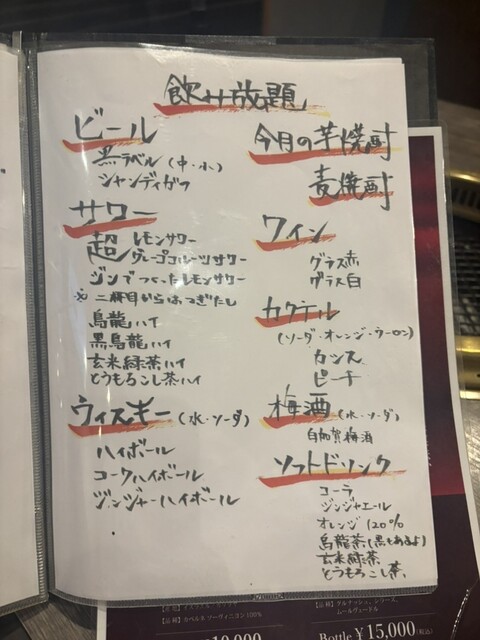 飲み放題
ビール
黒ラベル (中・小)
シャンディガフ
サワー
超 レモンサワー
グレープフルーツサワー
ジンでつくったレモンサワー
※ 二杯目からはつぎたし
烏龍ハイ
黒烏龍ハイ
玄米緑茶ハイ
とうもろこし茶ハイ
ウィスキー (水・ソーダ)
ハイボール
コークハイボール
ジンジャーハイボール
今月の芋焼酎
麦焼酎
ワイン
グラス赤
グラス白
カクテル
(ソーダ・オレンジ・ウーロン)
カシス
ピーチ
梅酒 (水・ソーダ)
白加賀梅酒
ソフトドリンク
コーラ
ジンジャエール
オレンジ 120%
烏龍茶(黒もあるよ)
玄米緑茶
とうもろこし茶
[品種] カベルネ ソーヴィニヨン 100%
[品種] グルナッシュ、シラーズ、
ムールヴェードル
Bottle ¥15,000(税込)